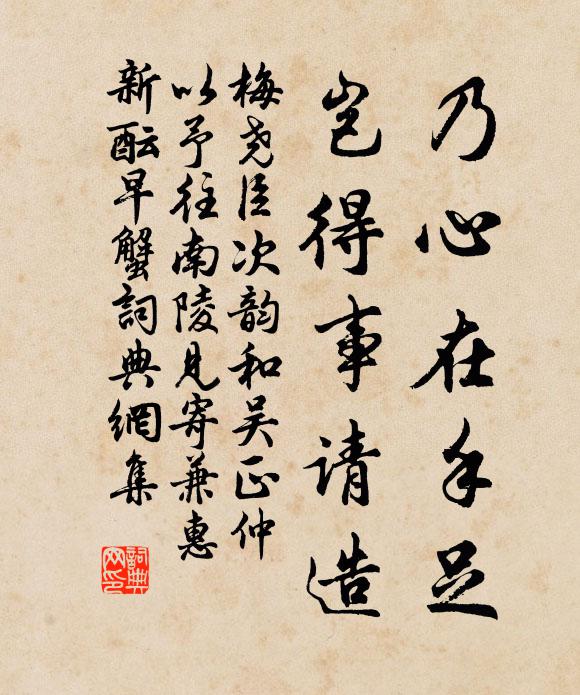 乃心在手足
岂得事请造
梅尧臣次韵和吴正仲
以予往南陵见寄兼惠
新酝早蟹詞典網集
詞典网印